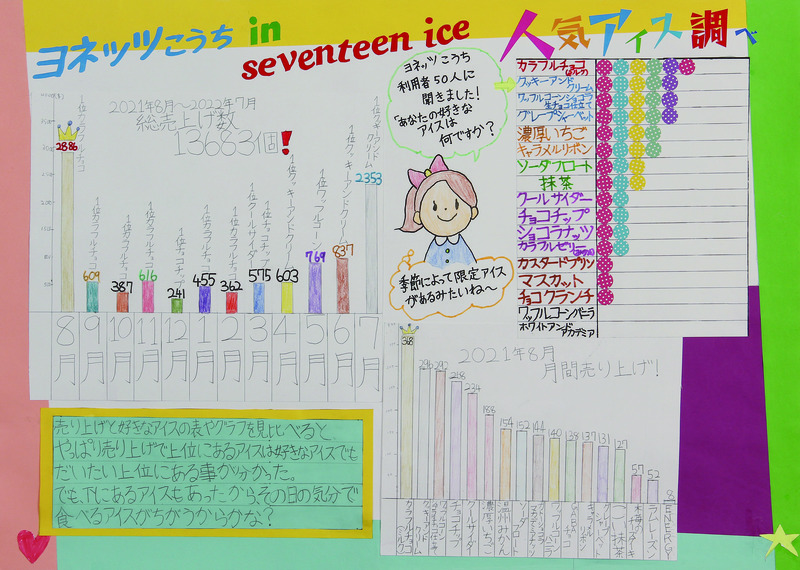 ヨネッツこうち in seventeen ice 人気アイス調べ
2021年8月〜2022年7月
総売上げ数
13663個!
2886
609
387
616
241
455
362
575
603
769
837
2353
1位カラフルチョコ
1位カラフルチョコ
1位カラフルチョコ
1位カラフルチョコ
1位チョコチップ
1位カラフルチョコ
1位カラフルチョコ
1位クールサイダー
1位チョコチップ
1位クッキーアンドクリーム
1位ワッフルコーン
1位クッキーアンドクリーム
1位クッキーアンドクリーム
8月
9月
10月
11月
12月
1月
2月
3月
4月
5月
6月
7月
ヨネッツこうち
利用者50人に
聞きました!
「あなたの好きな
アイスは
何ですか?
季節によって限定アイス
があるみたいね〜
カラフルチョコ
クッキーアンドクリーム
ワッフルコーンショコラ
生チョコ仕立て
グレープシャーベット
濃厚いちご
キャラメルリボン
ソーダフロート
抹茶
クールサイダー
チョコチップ
ショコラナッツ
カラフルゼリー
カスタードプリン
マスカット
チョコクランチ
ワッフルコーンバニラ
ホワイトアンド
2021年8月
月間売り上げ!
368
296
292
268
234
188
154
152
144
140
138
137
131
127
57
52
8
カラフルチョコ
クッキーアンドクリーム
チョコチップ
クールサイダー
濃厚いちご
温州みかん
ソーダフロート
抹茶
ラムレーズン
ENERGY
売り上げと好きなアイスの表やグラフを見比べると、
やっぱり売り上げで上位にあるアイスは好きなアイスでも
だいたい上位にある事が分かった。
でも下にあるアイスもあったからその日の気分で
食べるアイスがちがうからかな?